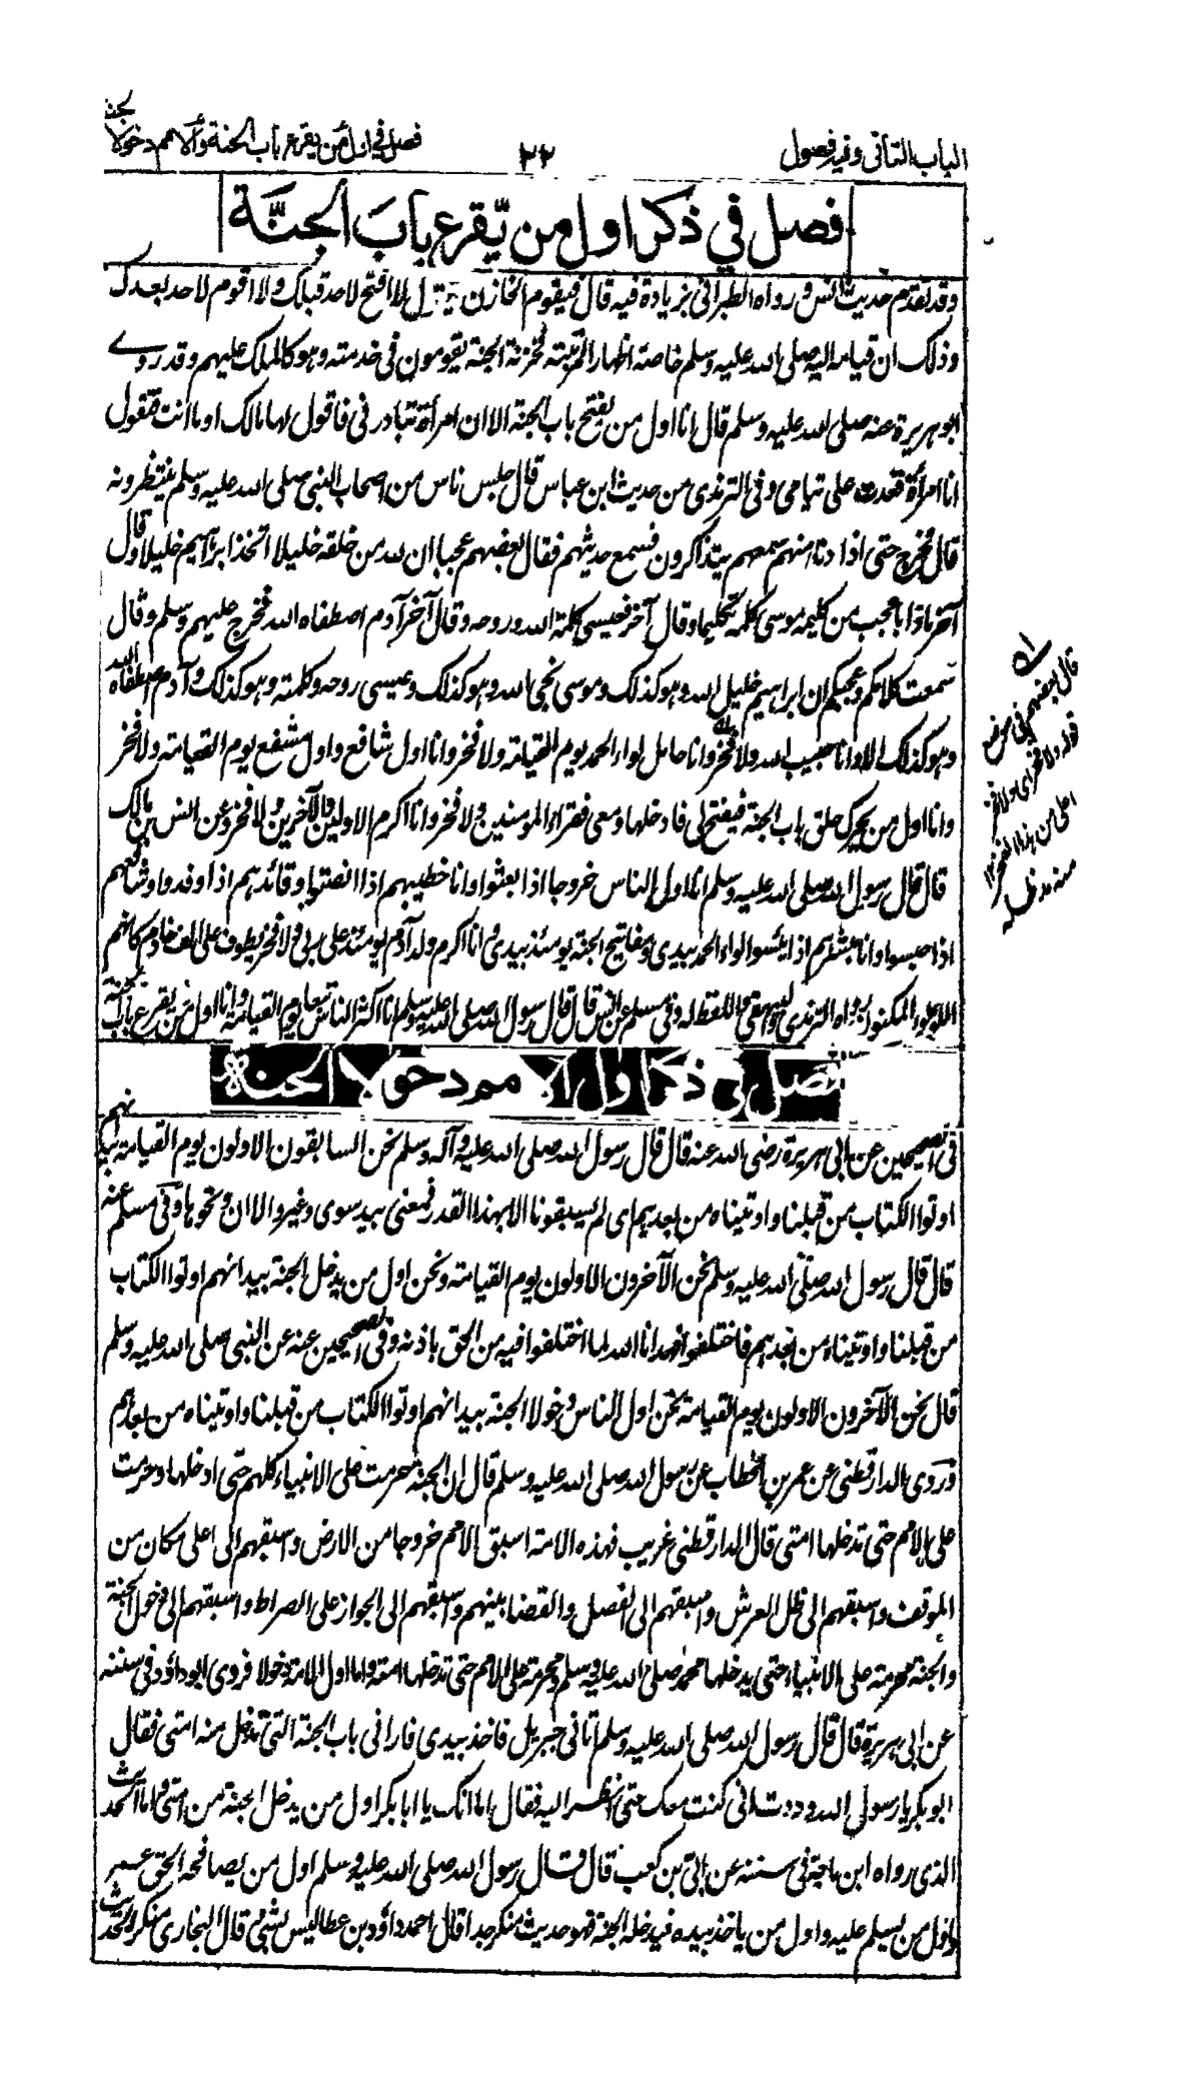 الباب الثاني وفيه فصول
٢٢
فصل في اول من يقرع باب الجنة وألامم دخولا الجنة
فصل في ذكر اول من يّقرع بابَ الجنَّة
وقد تقدم حديث انس ورواه الطبراني بزيادة فيه قال فيقوم الخازن فيقول لا افتح لاحد قبلك ولا اقوم لاحد بعدك
وذلك ان قيامه اليه صلى الله عليه وسلم خاصة اظهارا لمرتبته فخزنة الجنة يقومون في خدمته وهو كالملك عليهم وقد روے
ابو هريرة عنه صلى الله عليه وسلم قال انا اول من يفتح باب الجنة الا ان امرأة تبادرني فاقول لها مالك او ما انت فتقول
انا امرأة قعدت على يتامى وفي الترمذي من حديث ابن عباس قال جلس ناس من اصحاب النبي صلى الله عليه وسلم ينتظرونه
قال فخرج حتى اذا دنا منهم سمعهم يتذاكرون فسمع حديثهم فقال بعضهم عجبا ان لله من خلقه خليلا اتخذ ابراهيم خليلا وقال
آخر ماذا باعجب من كليمه موسى كلمه تكليما وقال آخر فعيسى كلمة الله وروحه وقال آخر آدم اصطفاه الله فخرج عليهم وسلم وقال
سمعت كلامكم وعجبكم ان ابراهيم خليل الله وهو كذلك وموسى نجي الله وهو كذلك وعيسى روحه وكلمته وهو كذلك وآدم اصطفاه الله
وهو كذلك الا وانا حبيب الله ولا فخر وانا حامل لواء الحمد يوم القيامة ولا فخر وانا اول شافع واول مشفع يوم القيامة ولا فخر
وانا اول من يحرك حلق باب الجنة فيفتح لي فادخلها ومعي فقراء المومنين ولا فخر وانا اكرم الاولين والآخرين ولا فخر وعن انس بن مالك
قال قال رسول الله صلى الله عليه وسلم انا اول الناس خروجا اذا بعثوا وانا خطيبهم اذا انصتوا وقائدهم اذا وفدوا وشافعهم
اذا حبسوا وانا مبشرهم اذا ايئسوا لواء الحمد بيدي ومفاتيح الجنة يومئذ بيدي وانا اكرم ولد آدم يومئذ على ربي ولا فخر يطوف علي الف خادم كانهم
اللؤلؤ المكنون رواه الترمذي والبيهقي واللفظ له وفي مسلم عن انس قال قال رسول الله صلى الله عليه وسلم انا اكثر الناس تبعا يوم القيامة وانا اول من يقرع باب الجنة
فصل في ذكر اول الامم دخولا الجنة
في الصحيحين عن ابي هريرة رضي الله عنه قال قال رسول الله صلى الله عليه وآله وسلم نحن السابقون الاولون يوم القيامة بيد انهم
اوتوا الكتاب من قبلنا واوتيناه من بعدهم اى لم يسبقونا الا بهذا القدر فمعنى بيد سوى وغير والا ان ونحوها وفي مسلم عنه
قال قال رسول الله صلى الله عليه وسلم نحن الآخرون الاولون يوم القيامة ونحن اول من يدخل الجنة بيد انهم اوتوا الكتاب
من قبلنا واوتيناه من بعدهم فاختلفوا فهدانا الله لما اختلفوا فيه من الحق باذنه وفي الصحيحين عنه عن النبي صلى الله عليه وسلم
قال نحن الآخرون الاولون يوم القيامة نحن اول الناس دخولا الجنة بيد انهم اوتوا الكتاب من قبلنا واوتيناه من بعدهم
وروى الدارقطني عن عمر بن الخطاب عن رسول الله صلى الله عليه وسلم قال ان الجنة حرمت على الانبياء كلهم حتى ادخلها وحرمت
على الامم حتى تدخلها امتى قال الدارقطني غريب فهذه الامة اسبق الامم خروجا من الارض واسبقهم الى اعلى مكان من
الموقف واسبقهم الى ظل العرش واسبقهم الى الفصل والقضاء بينهم واسبقهم الى الجواز على الصراط واسبقهم الى دخول الجنة
والجنة محرمة على الانبياء حتى يدخلها محمد صلى الله عليه وسلم ومحرمة على الامم حتى تدخلها امته واما اول الامة دخولا فروى ابوداؤد في سننه
عن ابي هريرة قال قال رسول الله صلى الله عليه وسلم اتاني جبريل فاخذ بيدي فاراني باب الجنة التي تدخل منه امتي فقال
ابو بكر يا رسول الله وددت اني كنت معك حتى انظر اليه فقال اما انك يا ابا بكر اول من يدخل الجنة من امتي واما الحديث
الذي رواه ابن ماجة في سننه عن ابي بن كعب قال قال رسول الله صلى الله عليه وسلم اول من يصافحه الحق عمر
واول من يسلم عليه واول من ياخذ بيده فيدخله الجنة فهو حديث منكر جدا قال احمد داؤد بن عطا ليس بشئ وقال البخاري منكر الحديث
قال بعضهم في
قوله ولا فخر اى ولا فخر
اعلى من هذا الفخر ١٢
منه مد ظله